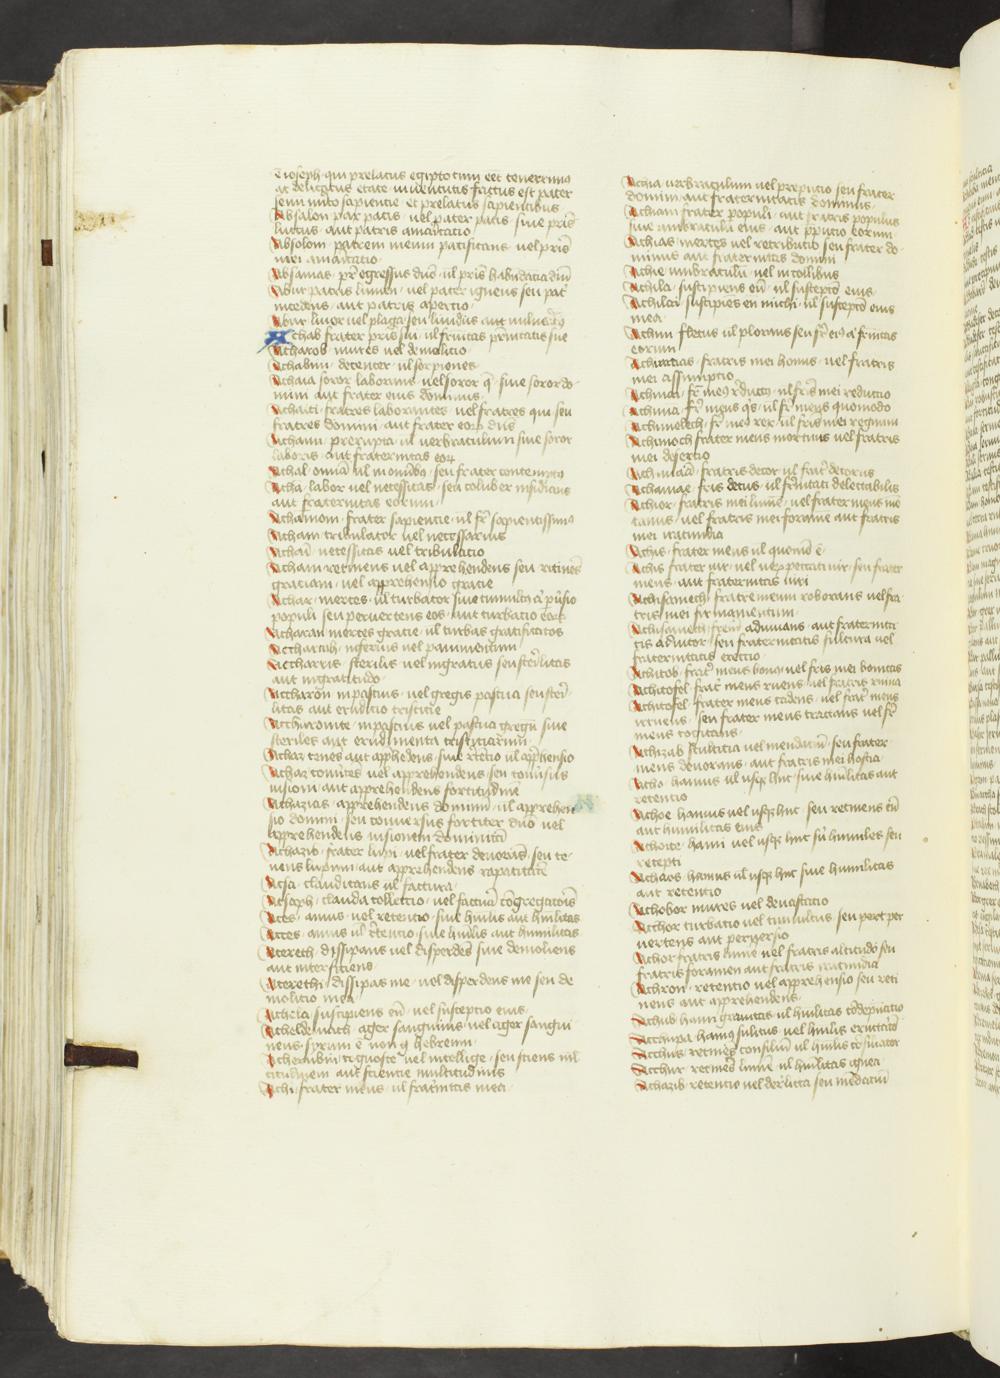 Et ioseph qui prelatus egipto cum eēt tenerrimꝰ
ac delicatus etate iuuentutis factus est pater
senū nīto sapiencie et prelatus sapiencibus
Absalon pax pacis uel pater pacis siue pris̄
luctus aut patris amaritatio
Absolom patrem meum pacificans uel pris̄
mei amaritatio
Absamas pr̄ egressus dn̄s ul pris̄ habūdācia dn̄i
Abiur patris lumen uel pater igneus seu pat̄
incedens aut patris apertio
Abur liuor uel plaga seu liuidus aut uulnꝰ
Achab frater pris sui ul frnitas prnitatis siue
Acharob mures uel demolitio
Achabin decenter ul scorpiones
Achaia soror laborans uel soror q̄ siue soror do
mini aut frater eius dominus
Achaici fratres laborantes uel fratres qui seu
fratres domini aut frater eoꝝ dn̄s
Achaim prerupta ul uerbraculum siue soror
laboris aut fraternitas eoꝝ
Achal omīa ul momēbo seu frater contemptꝰ
Acha labor uel necessitas seu coluber insidians
aut fraternitas eorum
Achamom frater sapientie ul fr̄ sapientissimꝰ
Acham tribulator uel necessarius
Achan necessitas uel tribulatio
Acham retinens uel apprehendens seu retinēs
graciam uel apprehensio gracie
Achar merces ul turbator siue tumultꝰ ꝑuersio
populi seu peruertens eos aut turbatio eoꝝ
Acharan merces gracie ul turbas gratificatos
Accharith inferius uel pauimentum
Accharris sterilis uel ingratus seu sterilitas
aut ingratitudo
Accharon in pastus uel gregis pascua seu steri
litas aut eruditio tristicie
Accharonite in pastus uel pascua gregū siue
steriles aut erudimenta tristiciarum
Achat tenēs aut apphēdens siue rētio ul apphēnsio
Achaz tonitēs uel apprehendens seu conuersus
uisioni aut apprehendens fortitudinē
Achazias apprehendens dominū ul apprehen
sio domini seu conuersus fortiter dn̄o uel
apprehendens uisionem dominicā
Achazib frater lupi uel frater deuorās seu te
nens lupum aut apprehendens rapacitatē
Acsa clauditans ul factura
Acsaph clauda collectio uel factura cōgregacōis
Acces amus uel retentio siue hūilis aut hūilitas
Acces amus ul retentio siue hūilis aut humilitas
Acereth dissipans uel disperdēs siue demoliens
aut interficiens
Acerethi dissipas me uel disperdens me seu de
molitio mea
Achela suscipiens eū uel susceptio eius
Acheldemach ager sanguinis uel ager sangui
neus syrum ē non ꝙ hebreum
Acherubin cognoscē uel intellige seu sciens ml
titudinem aut scientie multitudinis
Achi frater meus ul fraternitas mea
Achia uerbraculum uel preputio seu frater
domini aut fraternitatis dominus
Achiam frater populi aut fratris populus
siue umbraculū eius aut ꝓputio eorum
Achias merces uel retributio seu frater do
minus aut fraternitas domini
Achie umbraculū uel in collibus
Achila suscipiens eū ul susceptō eius
Achilai suscipies en michi ul susceptō eius
mea
Achim fletus ul plorans seu fr̄ eiꝰ a frnitas
eorum
Achimaas fratris mei homus uel fratris
mei assumptio
Achimai fr̄ meꝰ reductꝰ ul fris mei reductio
Achima fr̄ meus q̄s ul fr̄ meus quomodo
Achimelech fr̄ meꝰ rex ul fris mei regnum
Achimoch frater meus mortuus uel fratris
mei desertio
Achinaā fratris decor ul frat̄ decorus
Achamae fris decus ul frnitati delectabilis
Achior fratris mei lumē uel frater meus me
tanus uel fratris mei foramē aut fratris
mei iracundia
Achis frater meus ul quomō ē
Achis frater uir uel uix peccati uir seu frater
meus aut fraternitas uiri
Achisamech fratrē meum roborans uel fra
tris mei firmamentum
Achisamech frem̄ adiuuans aut fraternita
tis adiutor seu fraternitatis fultura uel
fraternitatis erectio
Achitob frat̄ meus bonꝰ uel fris mei bonitas
Achitofel frat̄ meus ruens uel fratris ruina
Achitofel frater meus cadens uel frat̄ meus
irruens seu frater meus tractans uel fr̄
meus cogitans
Achizab stultitia uel mendaciū seu frater
meus deuorans aut fratris mei hostia
Acho hamus ul usqꝫ huc siue hūilitas aut
retentio
Achoe hamus uel usqꝫ huc seu retinens eū
aut humilitas eius
Achoite hami uel usqꝫ huc sn̄ humiles seu
recepti
Achaos hamus ul usqꝫ huc siue humilitas
aut retentio
Achobor mures uel deuastatio
Achor turbatio uel tumultus seu peruer
uertens aut peruersio
Achor fratris lumē uel fratris altitudo seu
fratris foramen aut fratris iracundia
Achron retentio uel apprehensio seu reti
nens aut apprehendens
Achub hami grauitas ul hūilitas
Accupa hamꝰ uel hūilis
Acchus retinēs consiliū ul hūilis
Acchur retinēs lumē ul hūilitas ignea
Achazib retentio uel derlicta seu mēdaciū